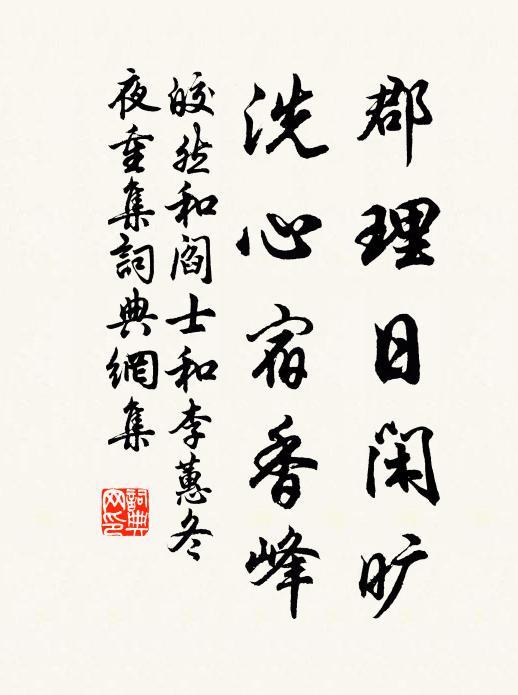 郡理日闲旷
洗心宿香峰
皎然和阎士和李蕙冬
夜重集詞典網集
詞典
网印